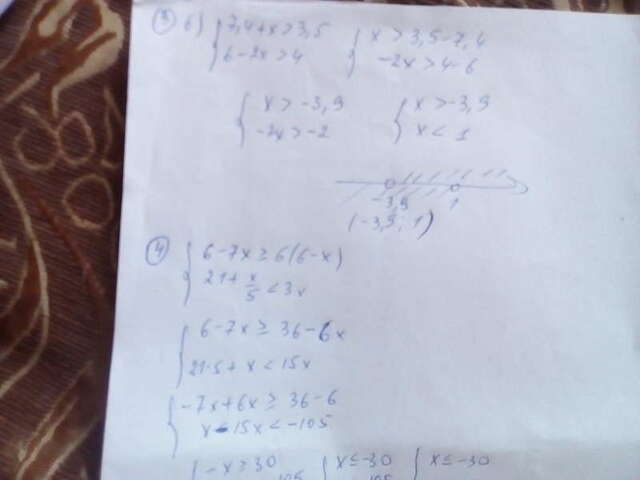 ③ б) { 7,4+x>3,5 { x > 3,5-7,4
6-2x>4 -2x>4-6
{ x > -3,9 { x >-3,9
-2x>-2 x < 1
-3,9 1
(-3,9; 1)
④ { 6-7x≥6(6-x)
21+x/5<3x
{ 6-7x ≥ 36-6x
21·5+x<15x
{ -7x+6x ≥ 36-6
x-15x<-105
{ -x≥30 { x≤-30 { x≤-30